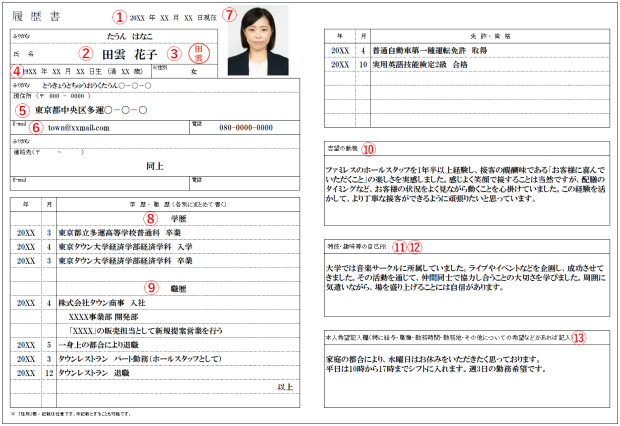 履歴書
① 20XX 年 XX 月 XX 日現在
⑦
ふりがな たうん はなこ
氏 名 ② 田雲 花子 ③ 田雲
④ 19XX 年 XX 月 XX 日生 (満 XX 歳)
※性別 女
ふりがな とうきょうとちゅうおうくたうん○-○-○
現住所 (〒 000 - 0000 )
⑤ 東京都中央区多運○-○-○
E-mail ⑥ town@xxmail.com
電話 080-0000-0000
ふりがな
連絡先(〒 - )
同上
E-mail
電話
年 月 学 歴・職 歴(各別にまとめて書く)
⑧ 学歴
20XX 3 東京都立多運高等学校普通科 卒業
20XX 4 東京タウン大学経済学部経済学科 入学
20XX 3 東京タウン大学経済学部経済学科 卒業
⑨ 職歴
20XX 4 株式会社タウン商事 入社
XXXX事業部 開発部
「XXXX」の販売担当として新規提案営業を行う
20XX 5 一身上の都合により退職
20XX 3 タウンレストラン パート勤務(ホールスタッフとして)
20XX 12 タウンレストラン 退職
以上
※「性別」欄:記載は任意です。未記載とすることも可能です。
年 月 免 許・資 格
20XX 4 普通自動車第一種運転免許 取得
20XX 10 実用英語技能検定2級 合格
志望の動機 ⑩
ファミレスのホールスタッフを1年半以上経験し、接客の醍醐味である「お客様に喜んで
いただくこと」の楽しさを実感しました。感じよく笑顔で接することは当然ですが、配膳の
タイミングなど、お客様の状況をよく見ながら動くことを心掛けていました。この経験を活
かして、より丁寧な接客ができるように頑張りたいと思っています。
特技・趣味等の自己PR ⑪⑫
大学では音楽サークルに所属していました。ライブやイベントなどを企画し、成功させて
きました。その活動を通じて、仲間同士で協力し合うことの大切さを学びました。周囲に
気遣いながら、場を盛り上げることには自信があります。
本人希望記入欄(特に給与・職種・勤務時間・勤務地・その他についての希望などがあれば記入) ⑬
家庭の都合により、水曜日はお休みをいただきたく思っております。
平日は10時から17時までシフトに入れます。週3日の勤務希望です。